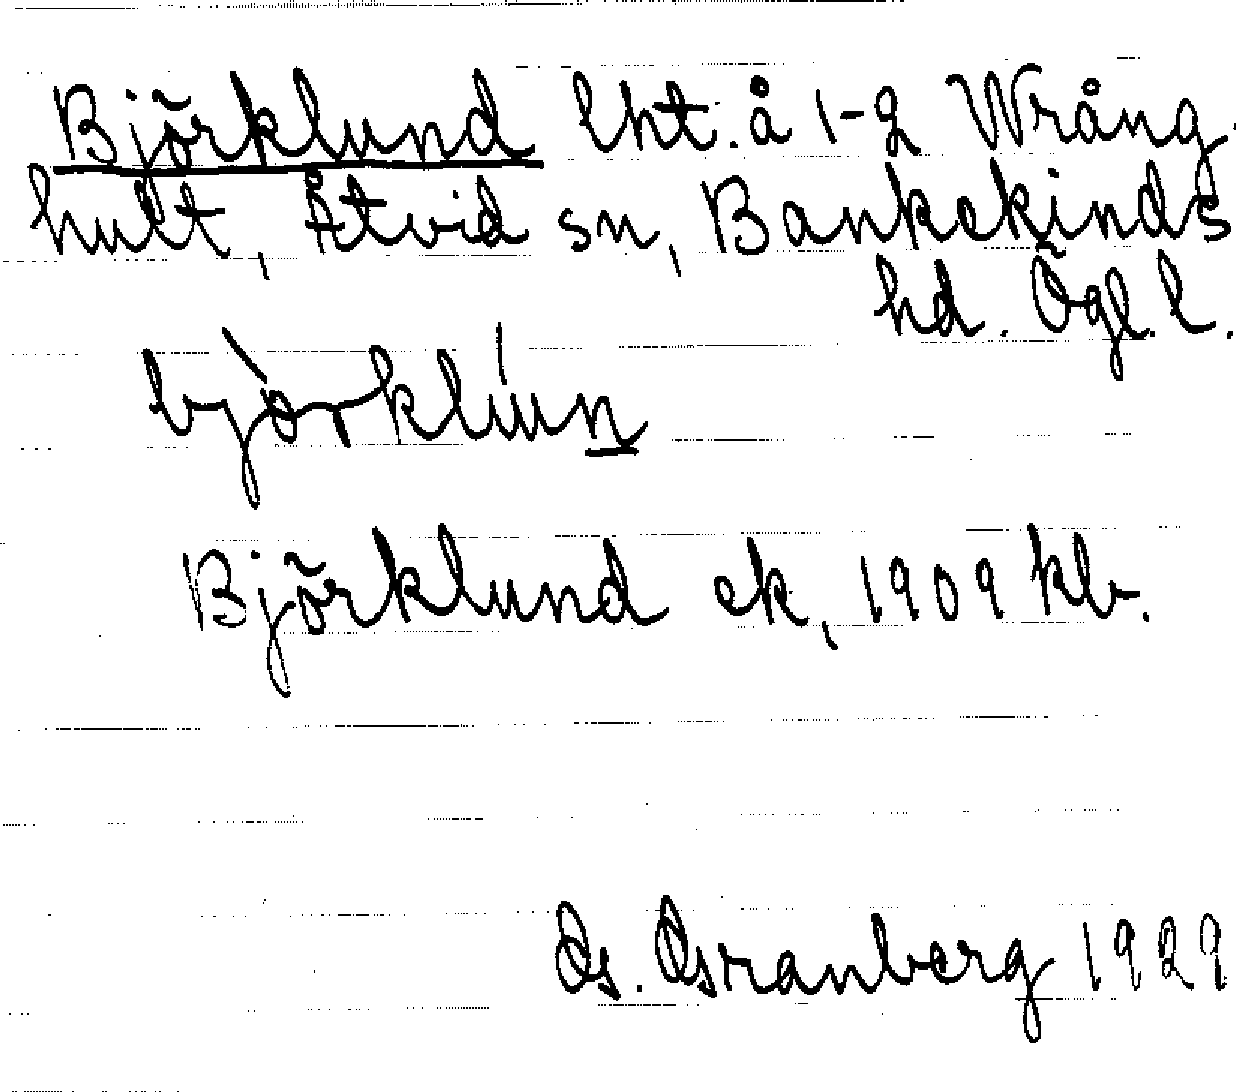 Björklund lht. å 1-2 Wrång-
hult, Åtvid sn, Bankekinds
hd. Ögl. l.
björklun
Björklund ek, 1909 kb.
1929